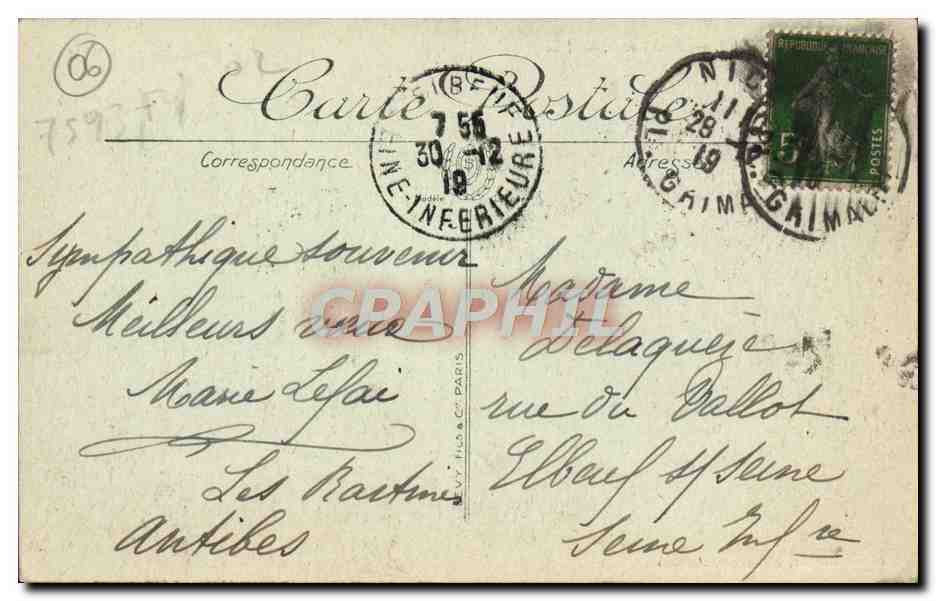 06
7593
Carte Postale
Correspondance
Adresse
ELBEUF
7 55
30 -12
19
SEINE-INFERIEURE
NICE
11
28
19
PL. GRIMALDI
REPUBLIQUE FRANÇAISE
5
POSTES
GRIMALDI
Sympathique souvenir
Meilleurs vœux
Marie Lefai
Les
Antibes
LEVY FILS & Cie PARIS
CPAPHIL
Madame
Delaquèze
rue du Vallot
Elbeuf s/ Seine
Seine Infre